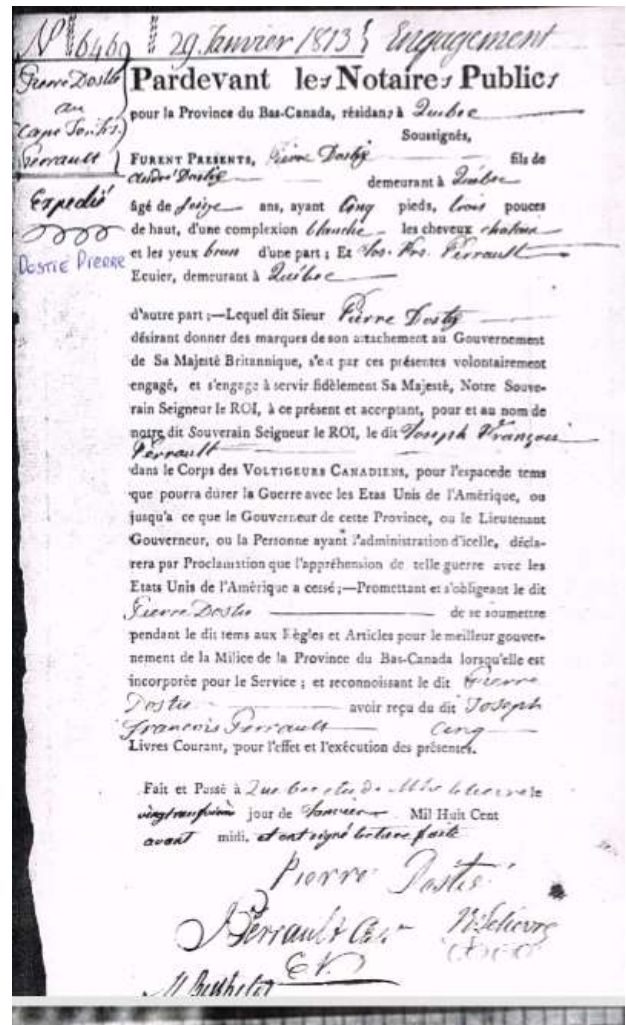 Nº 6469 29. Janvier 1813 Engagement
Pierre Dostie
au
Cape Jos. Frs.
Perrault
Expedié
DOSTIE PIERRE
Pardevant les Notaires Publics
pour la Province du Bas-Canada, résidans à Quebec
Soussignés,
FURENT PRESENTS, Pierre Dostie fils de
André Dostie demeurant à Québec
âgé de Seize ans, ayant Cinq pieds, trois pouces
de haut, d'une complexion blanche les cheveux chatain
et les yeux brun d'une part; Et Jos. Frs. Perrault
Ecuier, demeurant à Québec
d'autre part;—Lequel dit Sieur Pierre Dostie
désirant donner des marques de son attachement au Gouvernement
de Sa Majesté Britannique, s'est par ces présentes volontairement
engagé, et s'engage à servir fidèlement Sa Majesté, Notre Souve-
rain Seigneur le ROI, à ce présent et acceptant, pour et au nom de
notre dit Souverain Seigneur le ROI, le dit Joseph François
Perrault
dans le Corps des VOLTIGEURS CANADIENS, pour l'espace de tems
que pourra durer la Guerre avec les Etats Unis de l'Amérique, ou
jusqu'à ce que le Gouverneur de cette Province, ou le Lieutenant
Gouverneur, ou la Personne ayant l'administration d'icelle, décla-
rera par Proclamation que l'appréhension de telle guerre avec les
Etats Unis de l'Amérique a cessé;—Promettant et s'obligeant le dit
Pierre Dostie de se soumettre
pendant le dit tems aux Règles et Articles pour le meilleur gouver-
nement de la Milice de la Province du Bas-Canada lorsqu'elle est
incorporée pour le Service; et reconnoissant le dit Pierre
Dostie avoir reçu du dit Joseph
François Perrault Cinq
Livres Courant, pour l'effet et l'exécution des présentes.
Fait et Passé à Quebec etude de Mtre Lelievre le
vingt neuvième jour de Janvier Mil Huit Cent
avant midi, et ont signé lecture faite
Pierre Dostie
Perrault R: Lelievre
M Berthelot